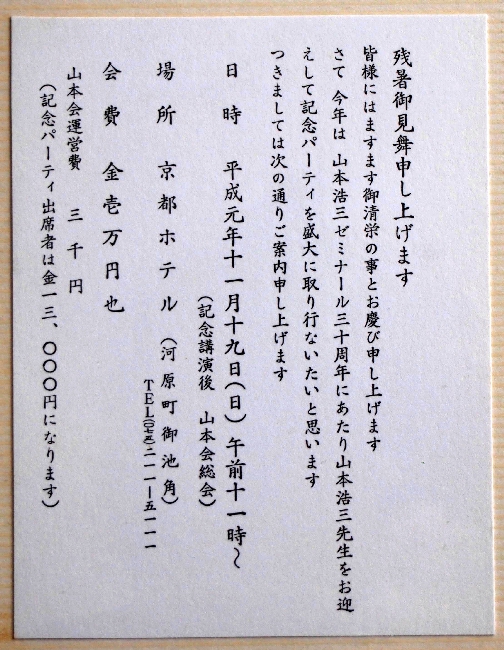 残暑御見舞申し上げます
皆様にはますます御清栄の事とお慶び申し上げます
さて 今年は 山本浩三ゼミナール三十周年にあたり山本浩三先生をお迎
えして記念パーティを盛大に取り行ないたいと思います
つきましては次の通りご案内申し上げます
日 時 平成元年十一月十九日(日) 午前十一時〜
(記念講演後 山本会総会)
場 所 京都ホテル (河原町御池角)
TEL(〇七五)二一一―五一一一
会 費 金壱万円也
山本会運営費 三千円
(記念パーティ出席者は金一三、〇〇〇円になります)